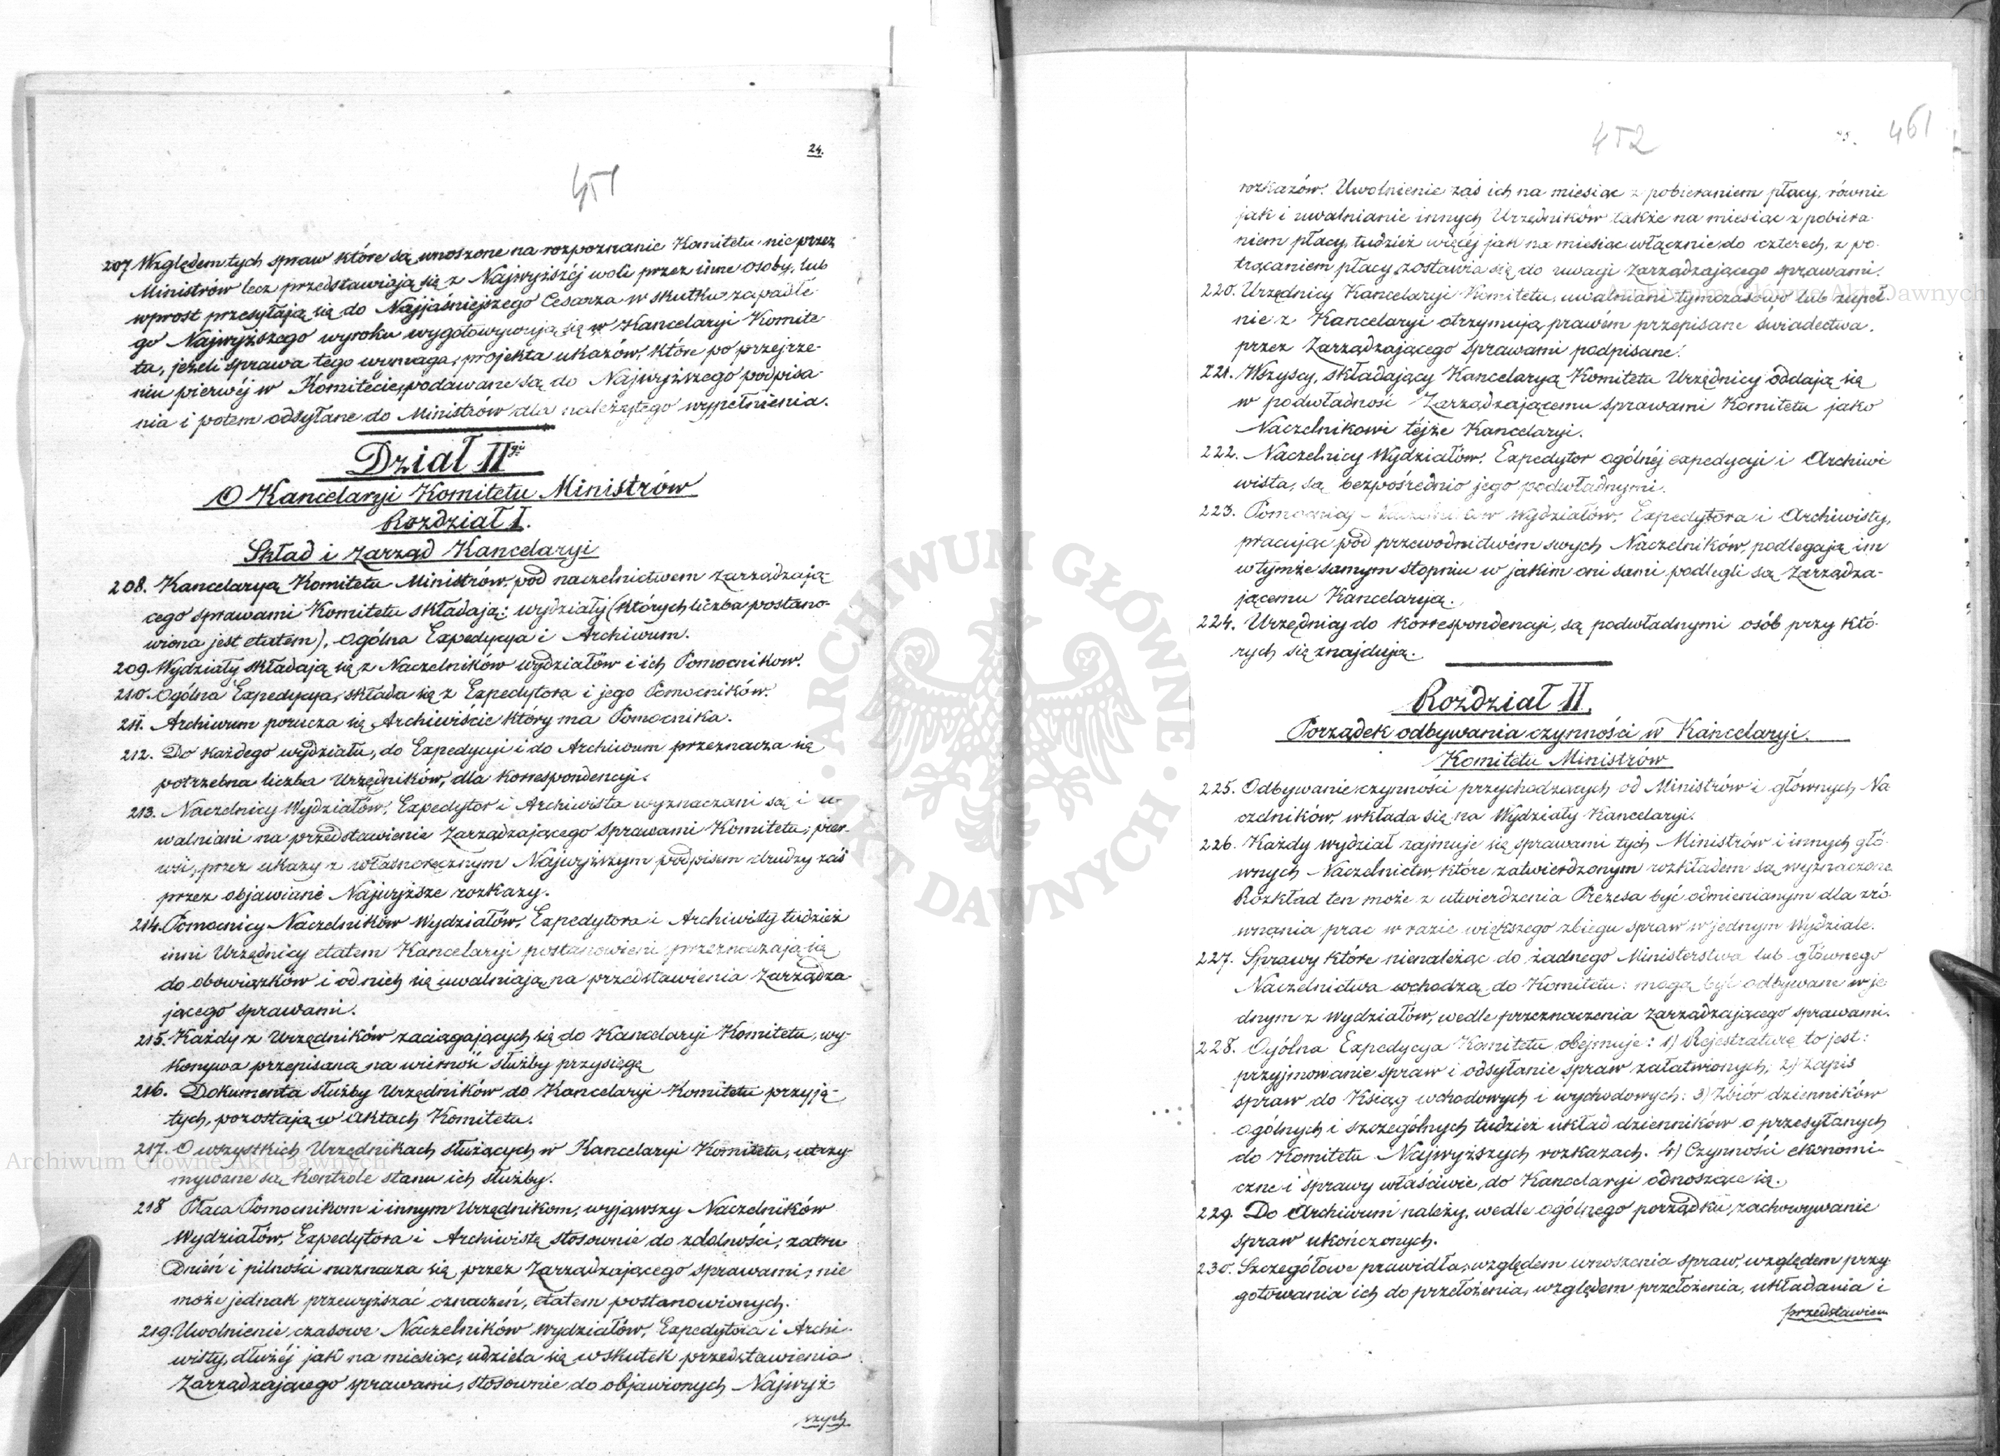 24.
451
207. Względem tych spraw które są wnoszone na rozpoznanie Komitetu nie przez
Ministrów lecz przedstawiają się z Najwyższéj woli przez inne osoby, lub
wprost przesyłają się do Najjaśniejszego Cesarza w skutku zapadłe-
go Najwyższego wyroku wygotowywują się w Kancelaryi Komite-
ta, jeżeli sprawa tego wymaga, projekta ukazów, które po przejrze-
niu pierwéj w Komitecie, podawane są do Najwyższego podpisa-
nia i potem odsyłane do Ministrów dla należytego wypełnienia.
Dział IIgi
O Kancelaryi Komitetu Ministrów
Rozdział I.
Skład i Zarząd Kancelaryi
208. Kancelaryą Komitetu Ministrów, pod naczelnictwem Zarządzają-
cego sprawami Komitetu składają: wydziały (których liczba postano-
wioną jest etatem), ogólna Expedycya i Archiwum.
209. Wydziały składają się z Naczelników wydziałów i ich Pomocników.
210. Ogólna Expedycya, składa się z Expedytora i jego Pomocników.
211. Archiwum porucza się Archiwiście który ma Pomocnika.
212. Do każdego wydziału, do Expedycyi i do Archiwum przeznacza się
potrzebna liczba Urzędników, dla korrespondencyi.
213. Naczelnicy Wydziałów, Expedytor i Archiwista wyznaczani są i u-
walniani na przedstawienie Zarządzającego Sprawami Komitetu, pier-
wsi, przez ukazy z własnoręcznym Najwyższym podpisem drudzy zaś
przez objawiane Najwyższe rozkazy.
214. Pomocnicy Naczelników Wydziałów, Expedytora i Archiwisty tudzież
inni Urzędnicy etatem Kancelaryi postanowieni przeznaczają się
do obowiązków i od nich się uwalniają, na przedstawienia Zarządza-
jącego sprawami.
215. Każdy z Urzędników zaciągających się do Kancelaryi Komitetu, wy-
konywa przepisaną na wierność służby przysięgę
216. Dokumenta służby Urzędników do Kancelaryi Komitetu przyję-
tych, pozostają w aktach Komitetu.
217. O wszystkich Urzędnikach służących w Kancelaryi Komitetu, utrzy-
mywane są kontrole stanu ich służby.
218 Płaca Pomocnikom i innym Urzędnikom, wyjąwszy Naczelników
Wydziałów, Expedytora i Archiwistę stosownie do zdolności, zatru-
dnień i pilności naznacza się, przez Zarządzającego sprawami, nie
może jednak przewyższać oznaczeń, etatem postanowionych.
219. Uwolnienie czasowe Naczelników Wydziałów, Expedytora i Archi-
wisty, dłużéj jak na miesiąc, udziela się wskutek przedstawienia
Zarządzającego sprawami, stosownie do objawionych Najwyż-
szych
452
461
rozkazów. Uwolnienie zaś ich na miesiąc z pobieraniem płacy, równie
jak i uwalnianie innych Urzędników także na miesiąc z pobiera-
niem płacy, tudzież więcéj jak na miesiąc włącznie do czterech, z po-
trącaniem płacy, zostawia się do uwagi Zarządzającego sprawami.
220. Urzędnicy Kancelaryi Komitetu, uwalniani tymczasowo lub zupeł-
nie z Kancelaryi otrzymują prawem przepisane świadectwa,
przez Zarządzającego sprawami podpisane.
221. Wszyscy, składający Kancelaryą Komitetu Urzędnicy oddają się
w podwładność Zarządzającemu sprawami Komitetu jako
Naczelnikowi téjże Kancelaryi.
222. Naczelnicy Wydziałów, Expedytor ogólnéj expedycyi i Archiwi-
wista, są bezpośrednio jego podwładnymi.
223. Pomocnicy Naczelników Wydziałów, Expedytora i Archiwisty,
pracując pod przewodnictwem swych Naczelników, podlegają im
w tymże samym stopniu w jakim oni sami podlegli są Zarządza-
jącemu Kancelaryą.
224. Urzędnicy do korrespondencyi, są podwładnymi osób przy któ-
rych się znajdują.
Rozdział II.
Porządek odbywania czynności w Kancelaryi.
Komitetu Ministrów
225. Odbywanie czynności przychodzących od Ministrów i głównych Na-
czelników, wkłada się na Wydziały Kancelaryi.
226. Każdy wydział zajmuje się sprawami tych Ministrów i innych głó-
wnych Naczelnictw, które zatwierdzonym rozkładem są wyznaczone.
Rozkład ten może z utwierdzenia Prezesa być odmienianym dla zró-
wnania prac w razie większego zbiegu spraw w jednym Wydziale.
227. Sprawy które nienależąc do żadnego Ministerstwa lub głównego
Naczelnictwa wchodzą do Komitetu: mogą być odbywane w je-
dnym z Wydziałów, wedle przeznaczenia Zarządzającego sprawami.
228. Ogólna Expedycya Komitetu obejmuje: 1) Rejestraturę to jest:
przyjmowanie spraw i odsyłanie spraw załatwionych, 2) Zapis
spraw do Ksiąg wchodowych i wychodowych: 3) Zbiór dzienników
ogólnych i szczególnych tudzież układ dzienników o przesyłanych
do Komitetu Najwyższych rozkazach. 4) Czynności ekonomi-
czne i sprawy właściwie do Kancelaryi odnoszące się.
229. Do Archiwum należy, wedle ogólnego porządku, zachowywanie
spraw ukończonych.
230. Szczegółowe prawidła, względem wnoszenia spraw, względem przy-
gotowania ich do przełożenia, względem przełożenia, układania i
przedstawien
ARCHIWUM GŁÓWNE AKT DAWNYCH
Archiwum Główne Akt Dawnych
Archiwum Główne Akt Dawnych